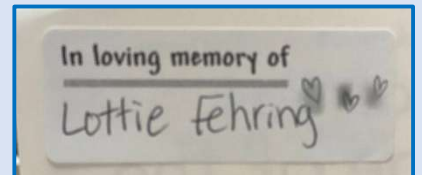 In loving memory of
Lottie Fehring